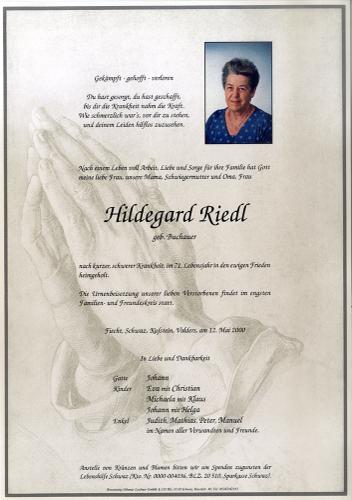 Gekämpft - gehofft - verloren
Du hast gesorgt, du hast geschafft,
bis dir die Krankheit nahm die Kraft.
Wie schmerzlich war's, vor dir zu stehen,
und deinem Leiden hilflos zuzusehen.
Nach einem Leben voll Arbeit, Liebe und Sorge für ihre Familie hat Gott
meine liebe Frau, unsere Mama, Schwiegermutter und Oma, Frau
Hildegard Riedl
geb. Buchauer
nach kurzer, schwerer Krankheit, im 72. Lebensjahr in den ewigen Frieden
heimgeholt.
Die Urnenbeisetzung unserer lieben Verstorbenen findet im engsten
Familien- und Freundeskreis statt.
Fiecht, Schwaz, Kufstein, Volders, am 12. Mai 2000
In Liebe und Dankbarkeit
Gatte Johann
Kinder Eva mit Christian
Michaela mit Klaus
Johann mit Helga
Enkel Judith, Mathias, Peter, Manuel
im Namen aller Verwandten und Freunde.
Anstelle von Kränzen und Blumen bitten wir um Spenden zugunsten der
Lebenshilfe Schwaz (Kto. Nr. 0000-004036, BLZ. 20 510, Sparkasse Schwaz).